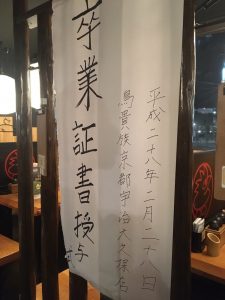 卒業証書授与
平成二十八年二月二八日
鳥貴族京都宇治大久保店